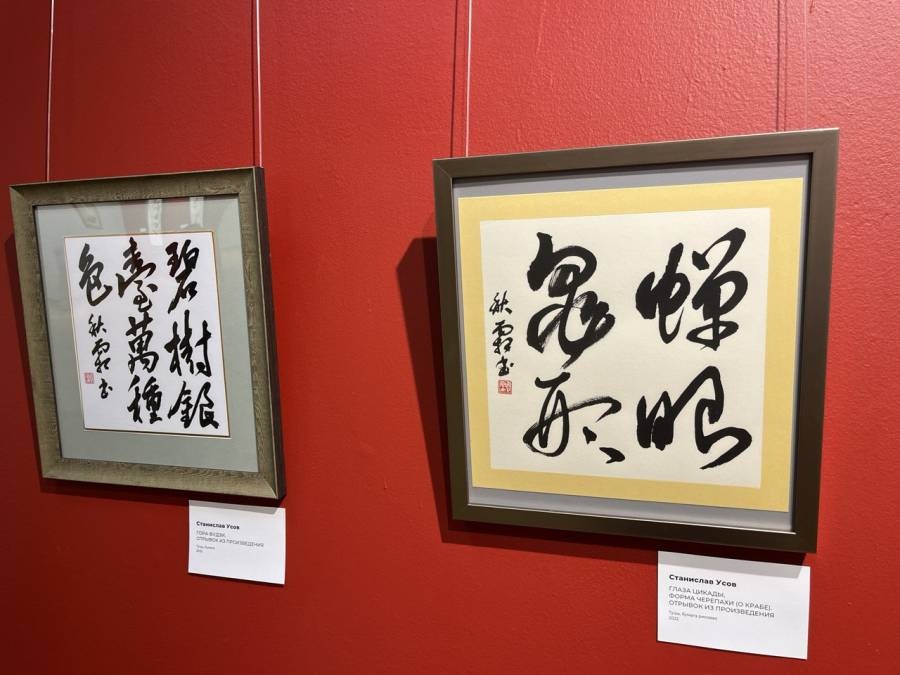 碧樹銀
臺萬種
色
秋霜书
Станислав Усов
ГОРА
ОТРЫВОК ИЗ ПРОИЗВЕДЕНИЯ
Тушь, бумага
蝉眼
龜形
秋霜书
Станислав Усов
ГЛАЗА ЦИКАДЫ,
ФОРМА ЧЕРЕПАХИ (О КРАБЕ).
ОТРЫВОК ИЗ ПРОИЗВЕДЕНИЯ
Тушь, бумага рисовая
2022